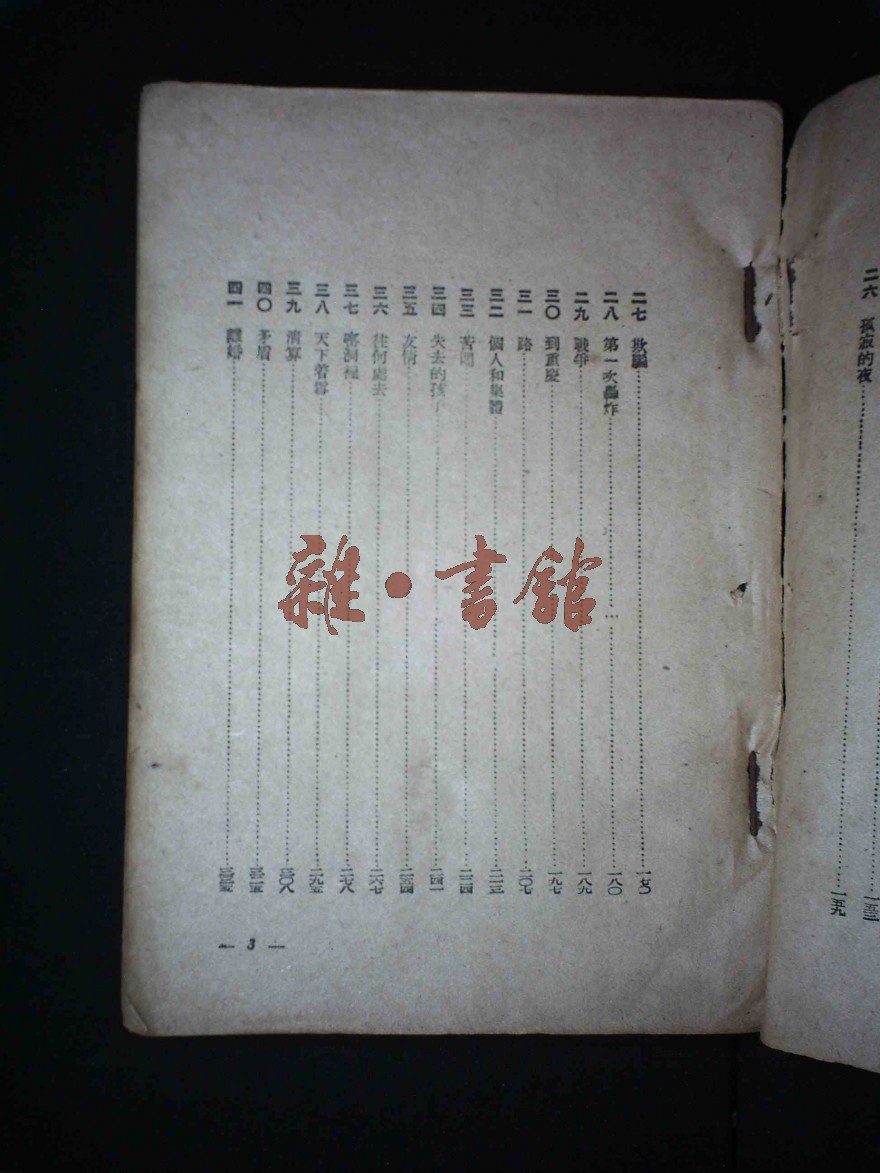 二六 孤寂的夜 一五二
一五九
二七 欺騙 一七〇
二八 第一次轟炸 一八〇
二九 戰爭 一八九
三〇 到重慶 一九七
三一 路 二〇七
三二 個人和集體 二一三
三三 苦悶 二二四
三四 失去的孩子 二四一
三五 友情 二五四
三六 往何處去 二六七
三七 窰洞裡 二七八
三八 天下着雪 二九五
三九 清算 三〇八
四〇 矛盾 三二五
四一 離婚 三三五
— 3 —
雜·書館